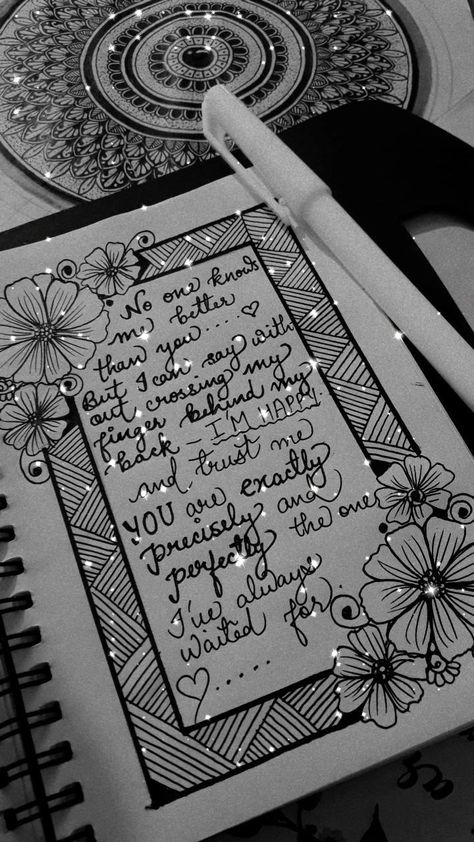 No one knows
me better
than you.... ♡
But I can say with
out crossing my
finger behind my
back - I'M HAPPY.
and trust me
YOU are exactly
precisely and
perfectly the one
I've always
waited for.
♡.....